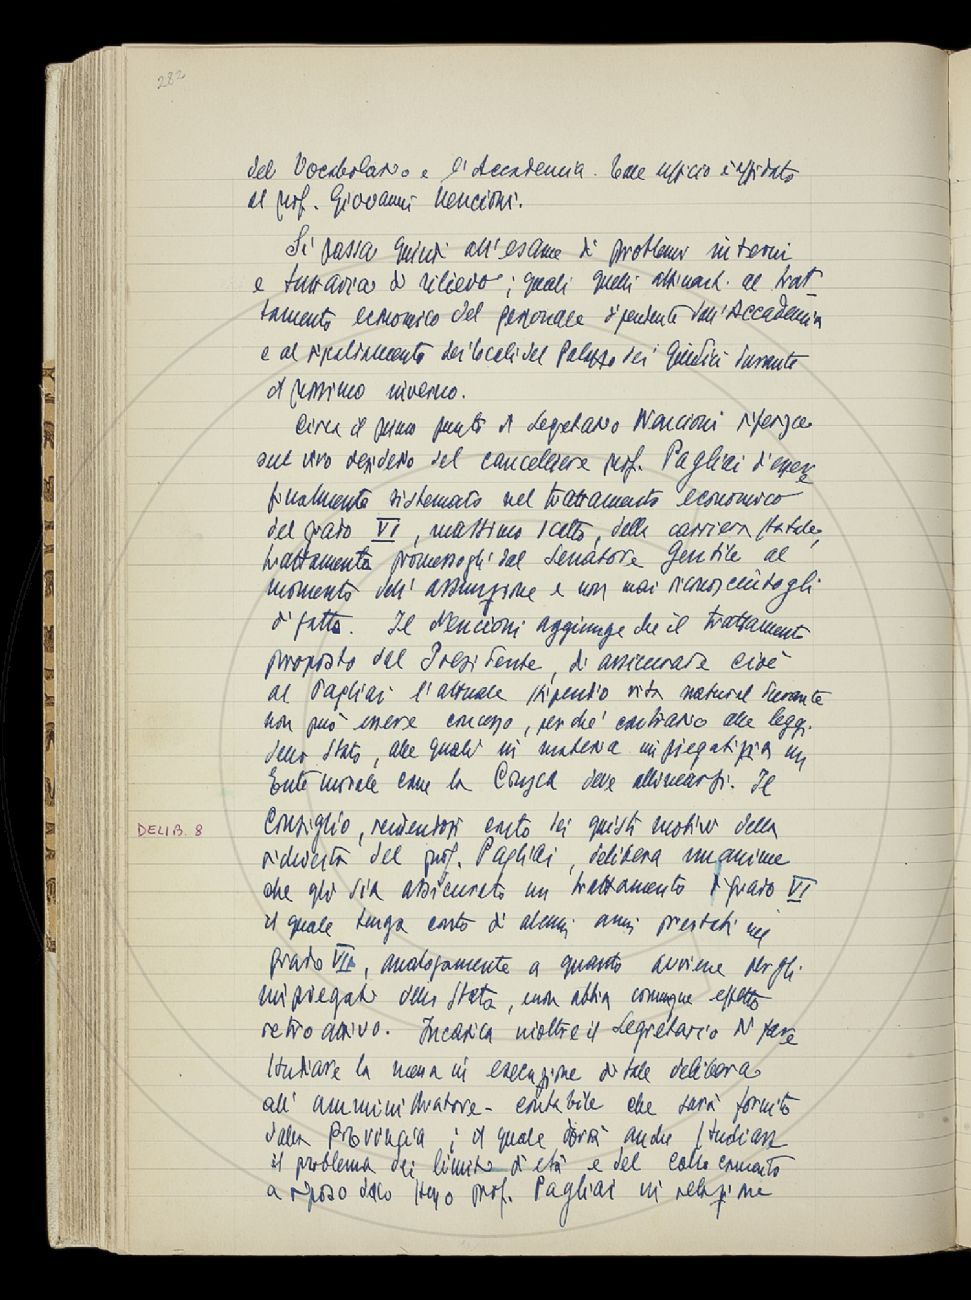 282
del Vocabolario e l'Accademia. Tale ufficio è affidato
al prof. Giovanni Nencioni.
Si passa quindi all'esame di problemi interni
e tuttavia di rilievo; quali quelli attinenti al trat-
tamento economico del personale dipendente dall'Accademia
e al riscaldamento dei locali del Palazzo dei Giudici durante
il prossimo inverno.
Circa il primo punto il Segretario Nencioni riferisce
sul vivo desiderio del cancelliere prof. Pagliai d'essere
finalmente sistemato nel trattamento economico
del grado VI, massimo scatto, della carriera statale,
trattamento promessogli dal Senatore Gentile al
momento dell'assunzione e non mai riconosciutogli
di fatto. Il Nencioni aggiunge che il trattamento
proposto dal Presidente, di assicurare cioè
al Pagliai l'attuale stipendio vita natural durante
non può essere concesso, perché contrario alle leggi
dello Stato, alle quali in materia impiegatizia un
Ente morale come la Crusca deve allinearsi. Il
DELIB. 8
Consiglio, rendendosi conto dei giusti motivi della
richiesta del prof. Pagliai, delibera unanime
che gli sia assicurato un trattamento di grado VI
il quale tenga conto di alcuni anni prestati nel
grado VII, analogamente a quanto avviene per gli
impiegati dello Stato, e non abbia comunque effetto
retroattivo. Incarica inoltre il Segretario di fare
studiare la messa in esecuzione di tale delibera
all'amministratore-contabile che sarà fornito
dalla Provincia; il quale dovrà anche studiare
il problema dei limiti di età e del collocamento
a riposo dello stesso prof. Pagliai in relazione